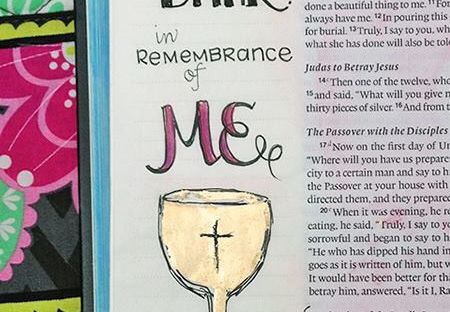 DRINK
in
REMEMBRANCE
of
ME
done a beautiful thing to me. 11 For
always have me. 12 In pouring this
for burial. 13 Truly, I say to you, wh
what she has done will also be tol
Judas to Betray Jesus
14 Then one of the twelve, who
15 and said, “What will you give m
thirty pieces of silver. 16 And from t
The Passover with the Disciples
17 Now on the first day of Un
“Where will you have us prepare
city to a certain man and say to h
the Passover at your house with
directed them, and they prepared
20 When it was evening, he r
eating, he said, “Truly, I say to yo
sorrowful and began to say to h
“He who has dipped his hand in
goes as it is written of him, but w
It would have been better for tha
betray him, answered, “Is it I, Ra